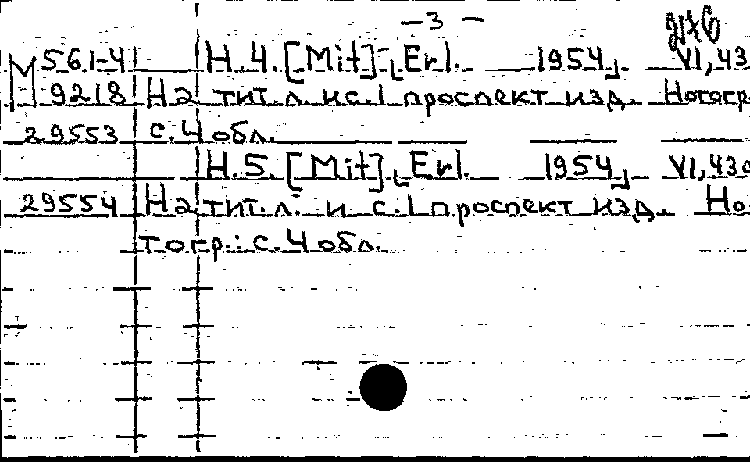 – 3 –
М 561-4 Н.4. [Mit] [Erl. 1954]. VI, 43
9218 На тит. л. и с. 1 проспект изд. Нотогр
29553 с. 4 обл.
Н.5. [Mit] [Erl. 1954] VI, 43с
29554 На тит. л. и с. 1 проспект изд. Но-
тогр.: с. 4 обл.